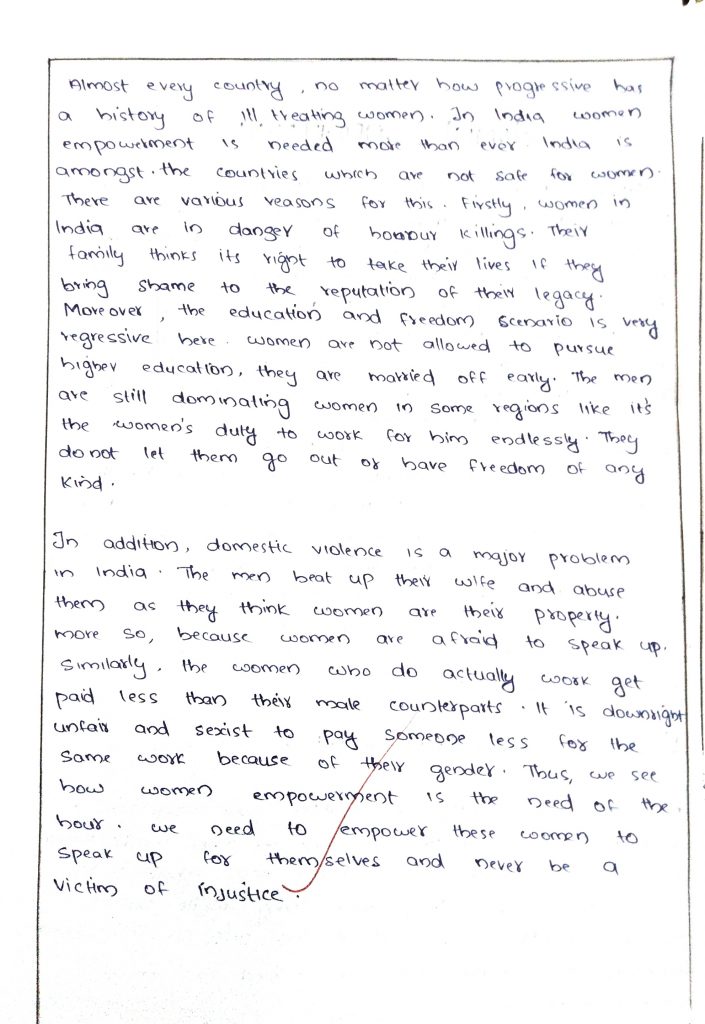 Almost every country, no matter how progressive has
a history of ill treating women. In India women
empowerment is needed more than ever India is
amongst the countries which are not safe for women.
There are various reasons for this. Firstly, women in
India are in danger of honour killings. Their
family thinks its right to take their lives if they
bring shame to the reputation of their legacy.
Moreover, the education and freedom scenario is very
regressive here. women are not allowed to pursue
higher education, they are married off early. The men
are still dominating women in some regions like it's
the women's duty to work for him endlessly. They
do not let them go out or have freedom of any
kind.

In addition, domestic violence is a major problem
in India. The men beat up their wife and abuse
them as they think women are their property.
more so, because women are afraid to speak up.
Similarly, the women who do actually work get
paid less than their male counterparts. It is downright
unfair and sexist to pay someone less for the
same work because of their gender. Thus, we see
how women empowerment is the need of the
hour. we need to empower these women to
speak up for themselves and never be a
victim of injustice.